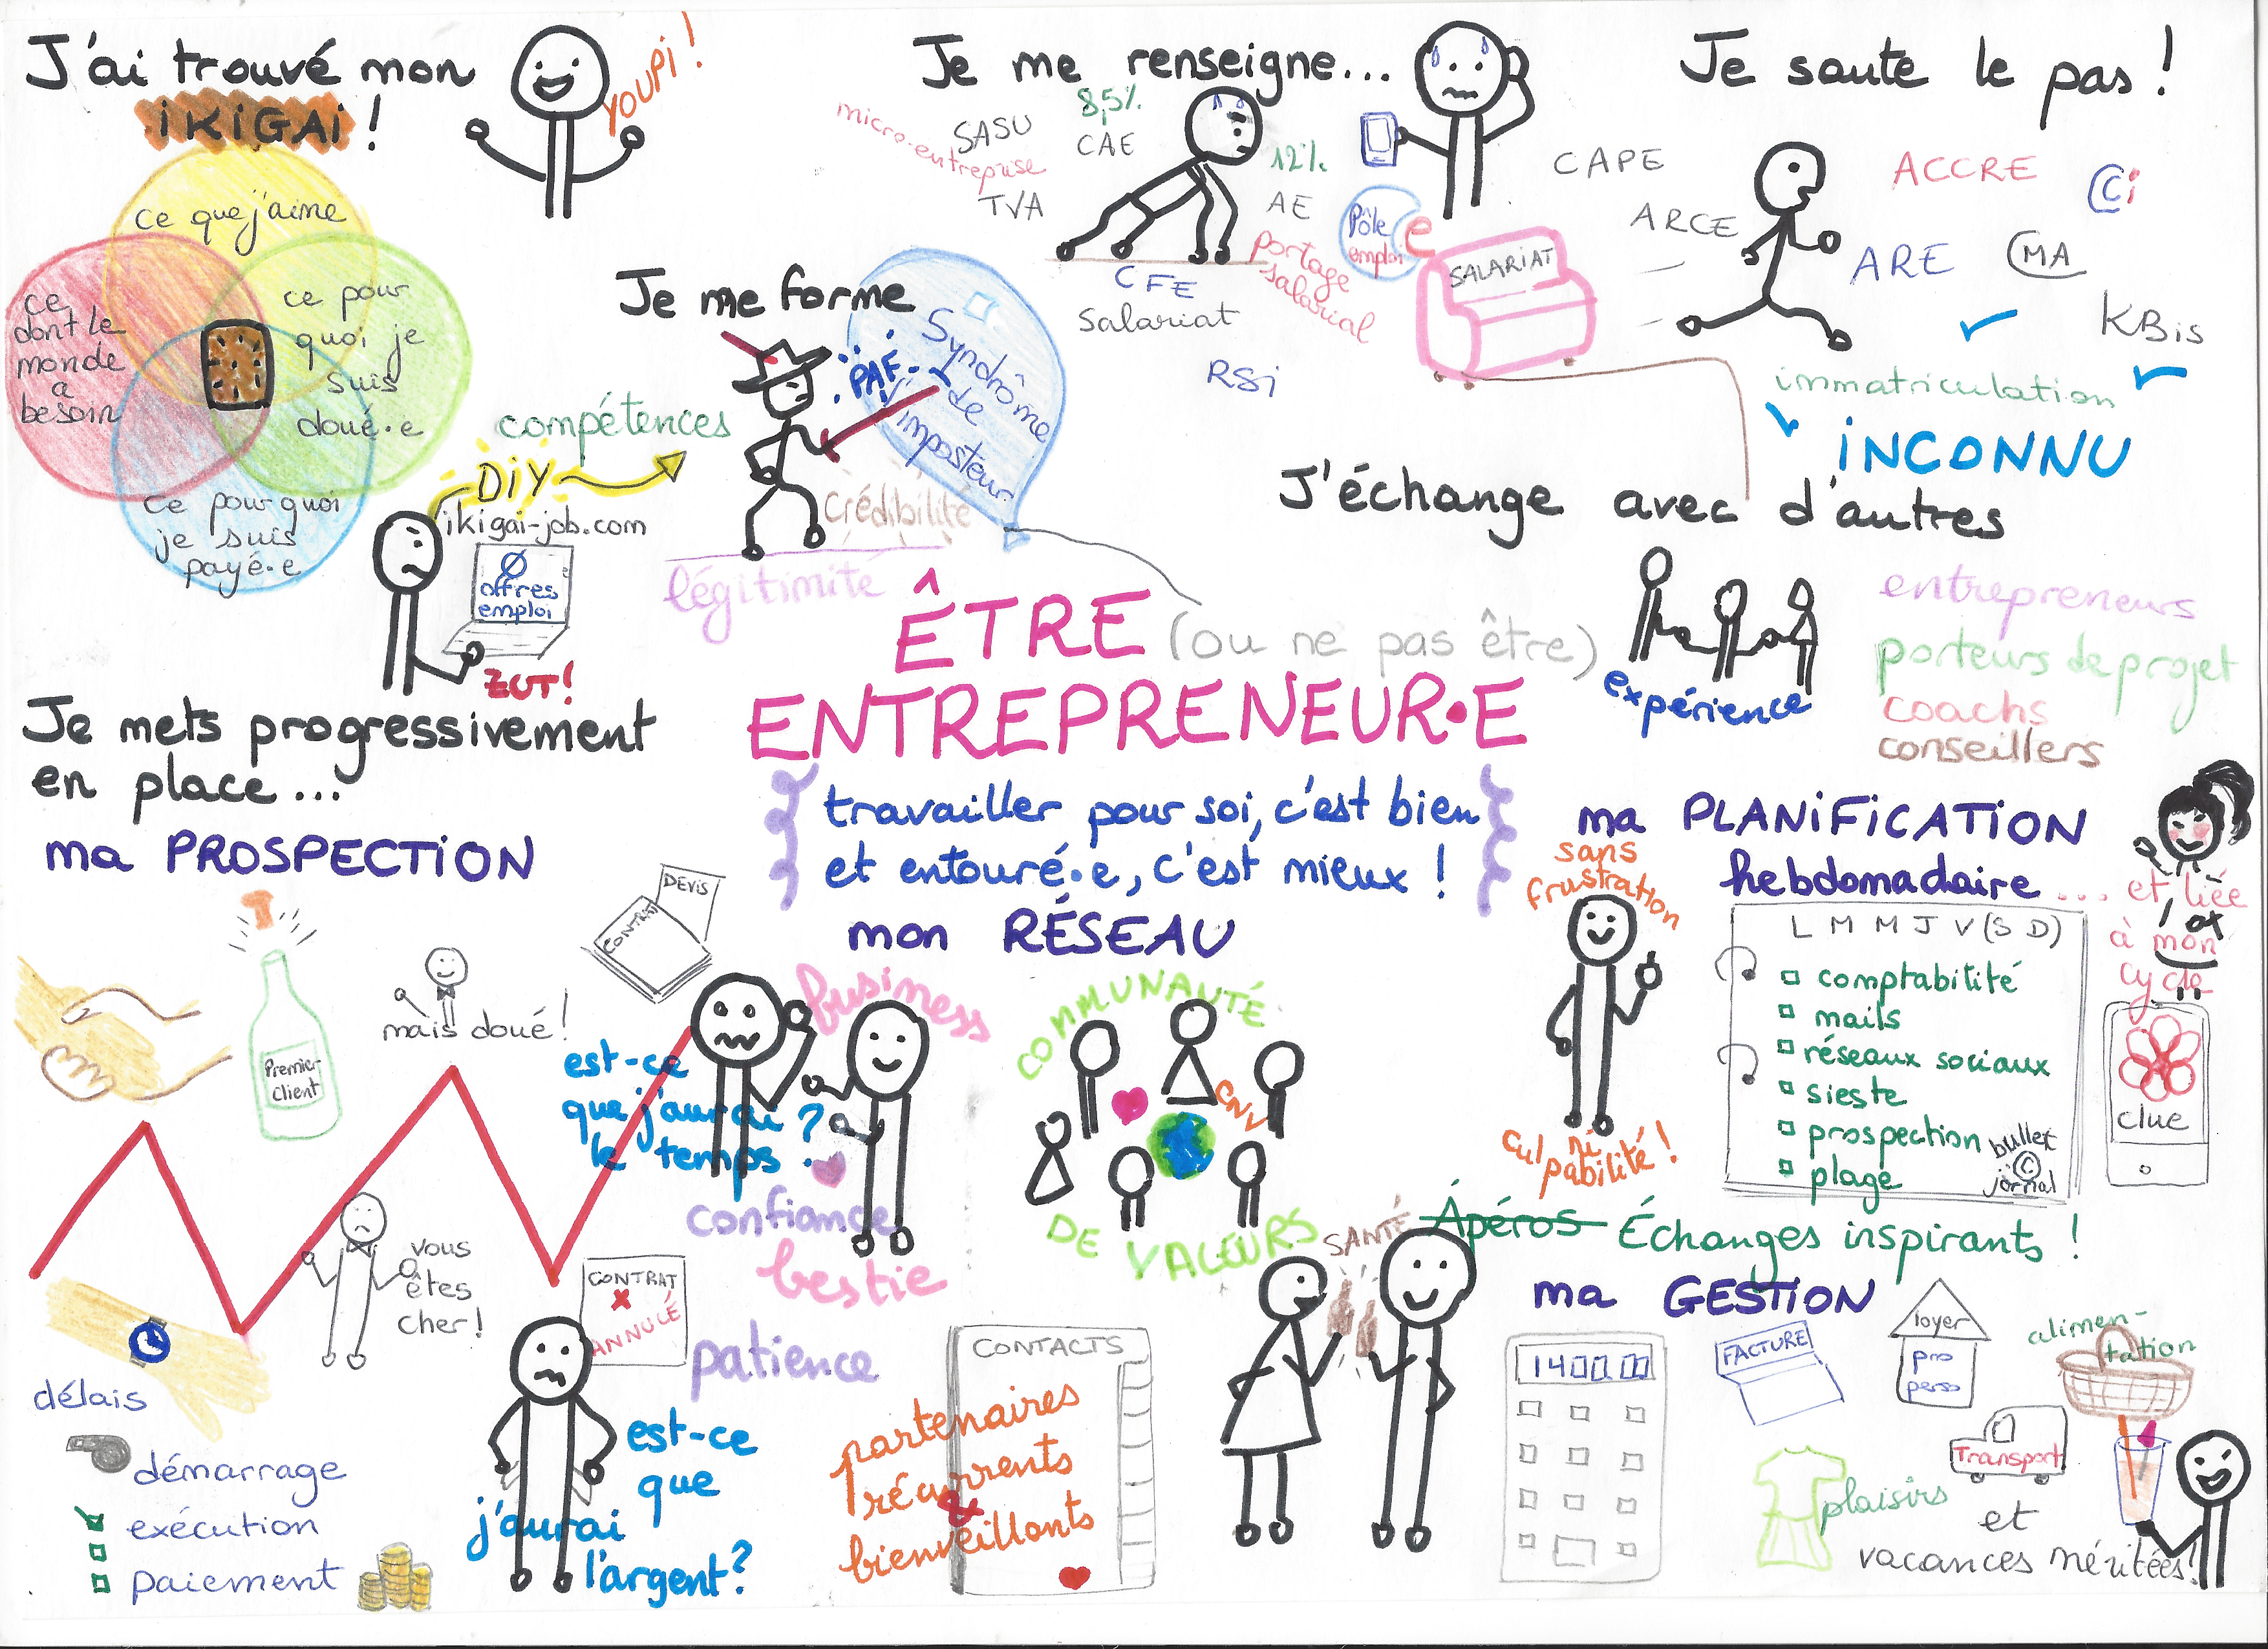 J'ai trouvé mon
iKiGAi !
YOUPi !
ce que j'aime
ce
dont le
monde
a
besoin
ce pour
quoi je
suis
doué·e
ce pourquoi
je suis
payé·e
DiY
ikigai-job.com
Ø
offres
emploi
ZUT!
compétences
Je me forme
PAF
Syndrôme
de
l'imposteur
Crédibilité
légitimité
Je me renseigne...
micro-entreprise
SASU
8,5%
CAE
TVA
12%
AE
portage
salarial
CFE
Salariat
RSi
Pôle
emploi
e
Je saute le pas !
SALARIAT
CAPE
ARCE
ACCRE
CCi
ARE
CMA
KBis
immatriculation
iNCONNU
J'échange avec d'autres
expérience
entrepreneurs
porteurs de projet
coachs
conseillers
ÊTRE (ou ne pas être)
ENTREPRENEUR·E
travailler pour soi, c'est bien
et entouré·e, c'est mieux !
Je mets progressivement
en place...
ma PROSPECTiON
Premier
Client
mais doué !
DEViS
CONTRAT
est-ce
que j'aurai
le temps ?
vous
êtes
cher !
délais
démarrage
exécution
paiement
CONTRAT
ANNULÉ
est-ce
que
j'aurai
l'argent?
mon RÉSEAU
business
confiance
bestie
patience
COMMUNAUTÉ
CNV
DE VALEURS
CONTACTS
partenaires
récurrents
&
bienveillants
SANTÉ
Apéros Échanges inspirants !
ma PLANiFiCATiON
hebdomadaire ... et liée
à mon
cycle
sans
frustration
ni
culpabilité !
L M M J V (S D)
comptabilité
mails
réseaux sociaux
sieste
prospection
plage
bullet
©
journal
clue
ma GESTiON
1400.00
FACTURE
loyer
pro
perso
alimen-
tation
Transport
plaisirs
et
vacances méritées!